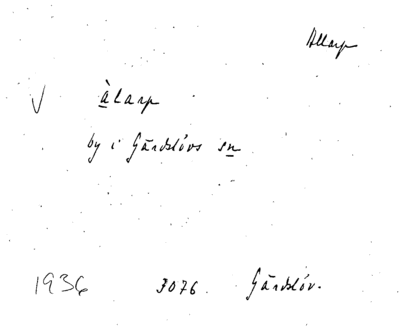 Allarp
V àlarp
by i Gärdslövs sn
1936 3076. Gärdslöv.